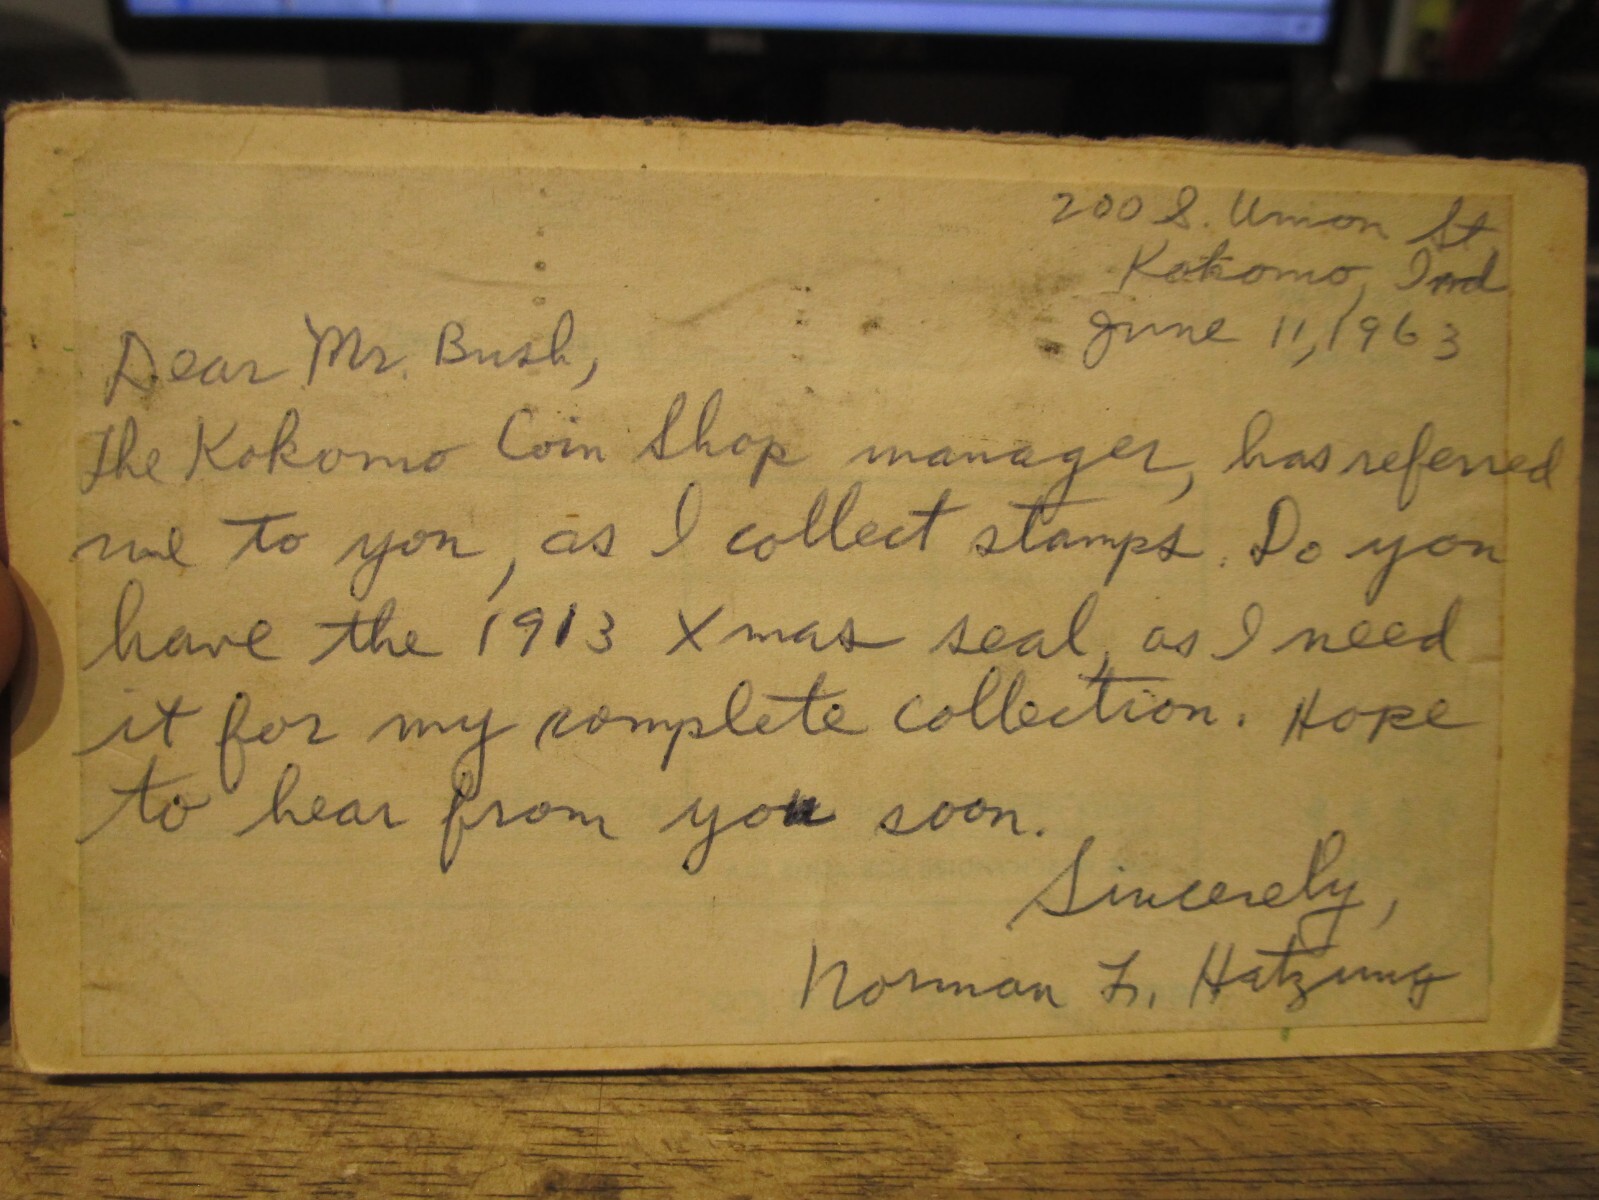 DELL
200 S. Union St.
Kokomo, Ind
June 11, 1963
Dear Mr. Bush,
The Kokomo Coin Shop manager, has referred
me to you, as I collect stamps. Do you
have the 1913 Xmas seal, as I need
it for my complete collection. Hope
to hear from you soon.
Sincerely,
Norman L. Hatzung